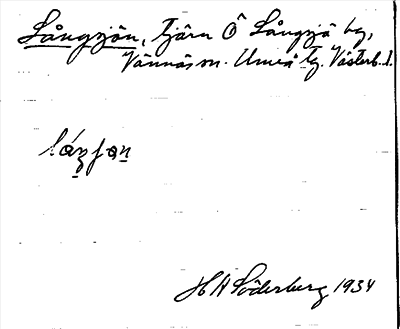 Långsjön, tjärn Ö Långsjö by,
Vännäs sn. Umeå tg. Västerb. l.
H A Söderberg 1934